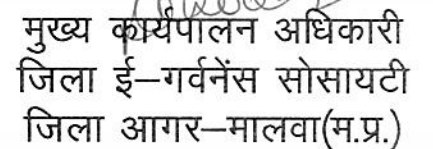 मुख्य कार्यपालन अधिकारी
जिला ई–गर्वनेंस सोसायटी
जिला आगर–मालवा(म.प्र.)